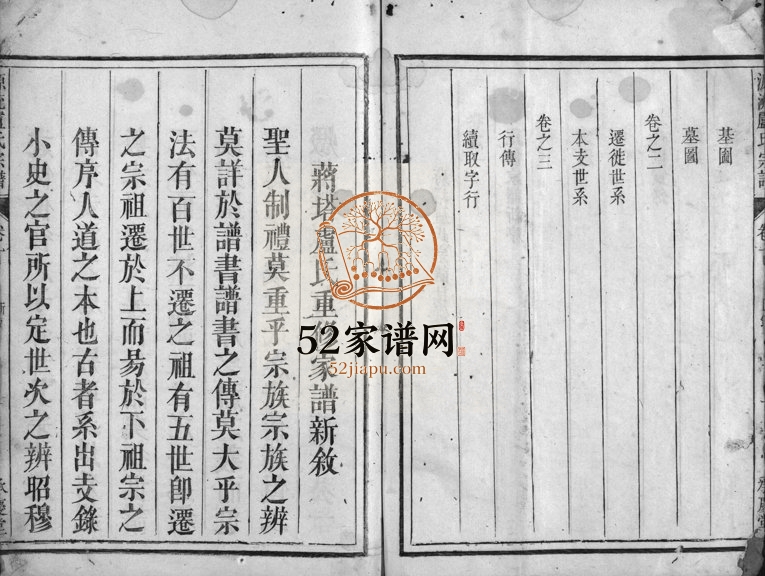 基圖
墓圖
卷之二
遷徙世系
本支世系
卷之三
行傳
續取字行
蔣塔盧氏重修家譜新敘
聖人制禮莫重乎宗族宗族之辨
莫詳於譜書譜書之傳莫大乎宗
法有百世不遷之祖有五世卽遷
之宗祖遷於上而易於下祖宗之
傳序人道之本也古者系出支錄
小史之官所以定世次之辨昭穆
盧氏宗譜
52家谱网
52jiapu.com